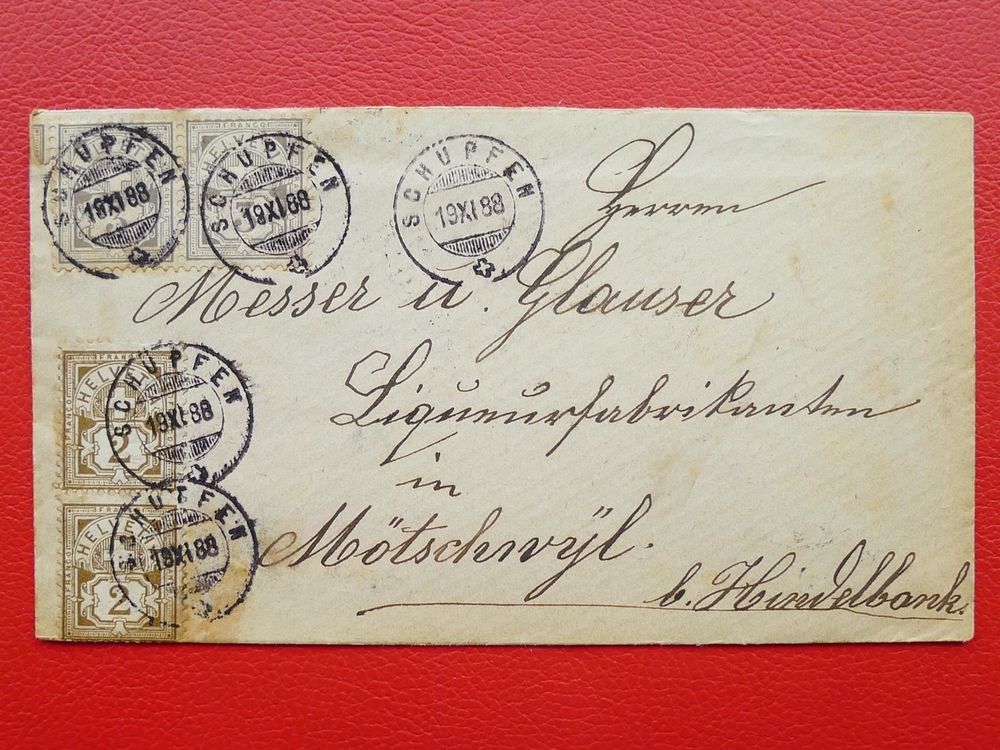 FRANCO
HELVE
SCHÜPFEN
19 XI 88
SCHÜPFEN
19 XI 88
3
SCHÜPFEN
19 XI 88
Herren
Messer u. Glauser
Liqueurfabrikanten
in
Mötschwÿl.
b. Hindelbank.
FRANCO
HELVE
2
SCHÜPFEN
19 XI 88
FRANCO
HELVE
2
SCHÜPFEN
19 XI 88